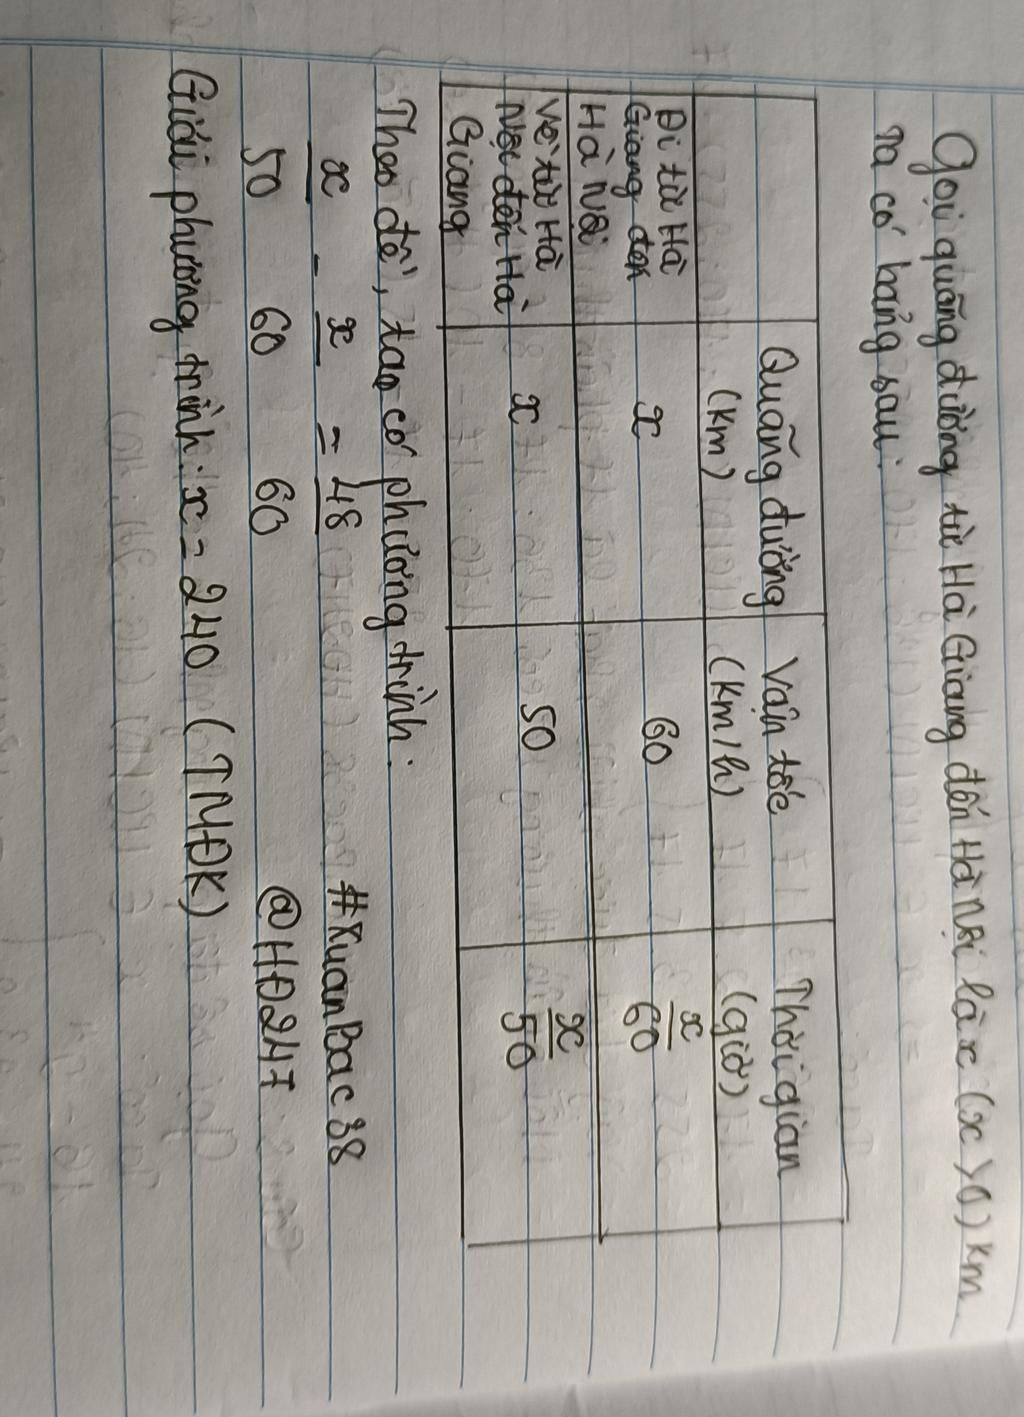 Gọi quãng đường từ Hà Giang đến Hà Nội là x (x > 0) km.
Ta có bảng sau:
Quãng đường (km) Vận tốc (km/h) Thời gian (giờ)
Đi từ Hà Giang đến Hà Nội x 60 x/60
Về từ Hà Nội đến Hà Giang x 50 x/50
Theo đề, ta có phương trình:
x/50 - x/60 = 48/60 #XuanBac38
@HĐ247
Giải phương trình: x = 240 (TMĐK)